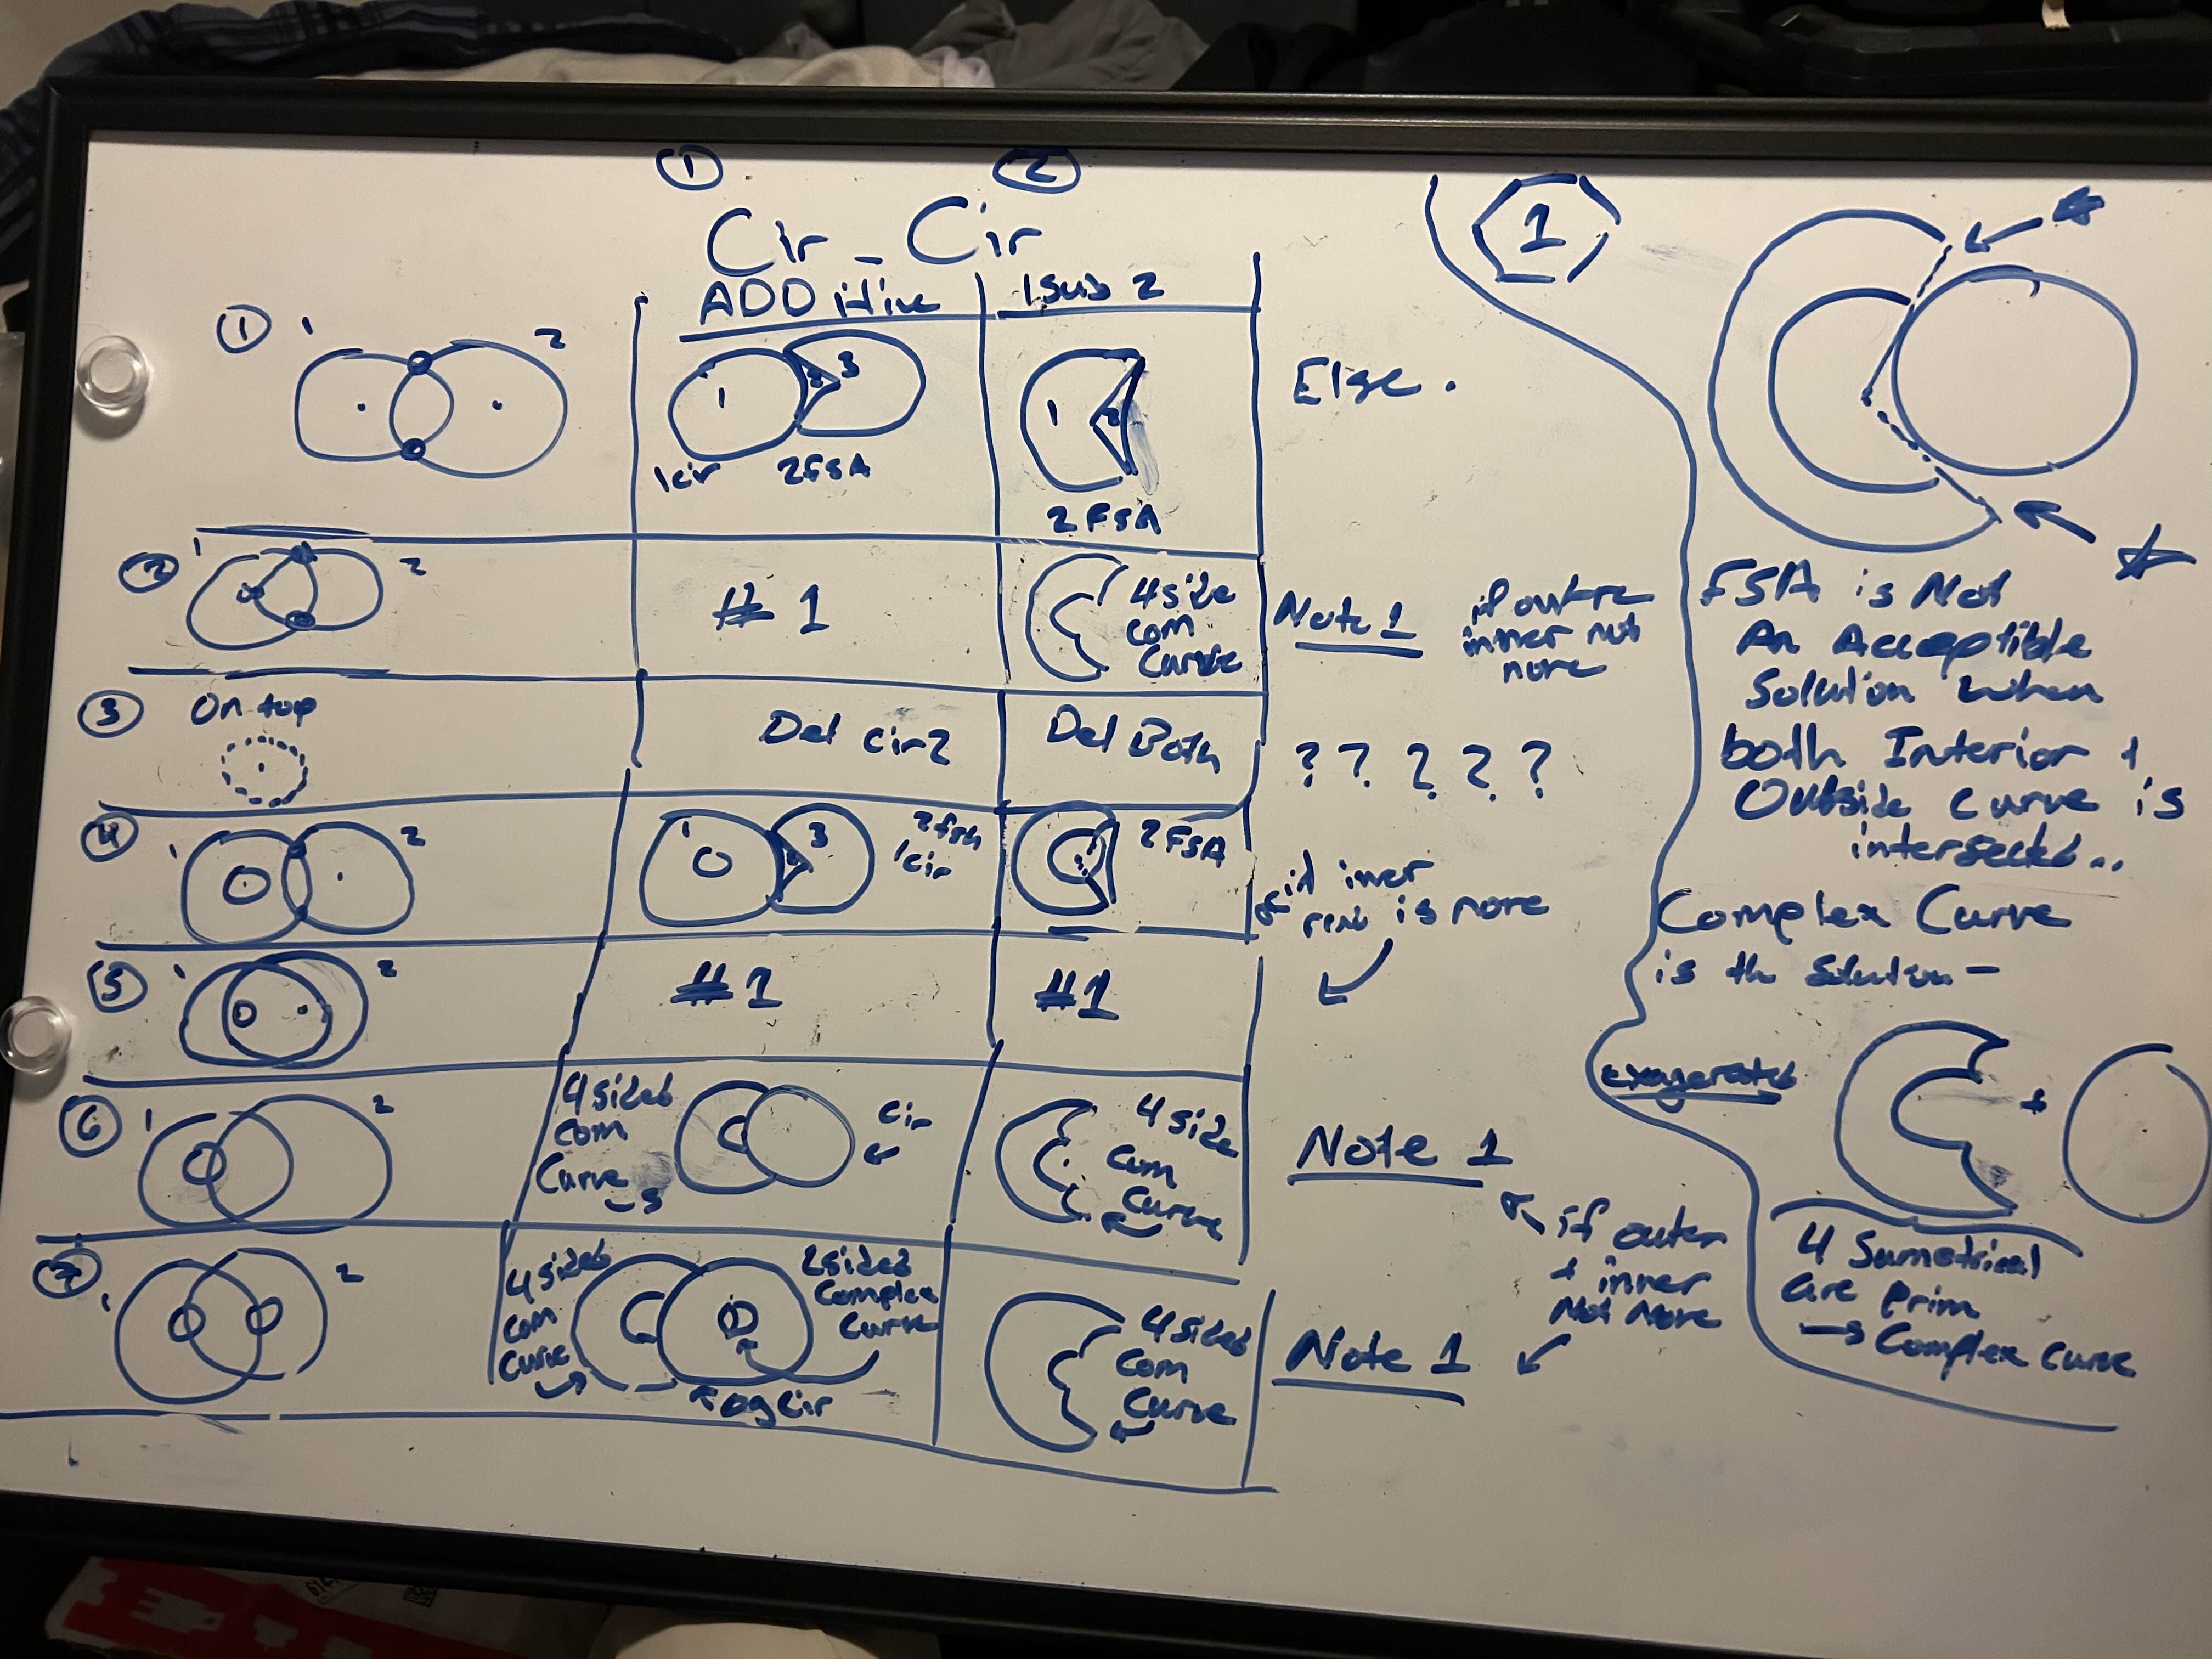 ① ②
Cir - Cir
ADDitive 1 Sub 2
① 1 2
1 3
1 cir 2FSA
1 2
2 FSA
Else.
② 1 2
# 1
4 side
com
Curve
Note 1
inner not
more
③ On top
Del cir2
Del Both
? ? ? ? ?
④ 1 2
1 3
1 cir
2FSA
if inner
is more
⑤ 1 2
#1
#1
⑥ 1 2
4 sided
com
Curve
cir
4 side
com
Curve
Note 1
if outer
+ inner
Not More
⑦ 1 2
4 sided
com
curve
2 sided
Complex
Curve
og cir
4 sided
com
Curve
Note 1
1
FSA is Not
An Acceptible
Solution when
both Interior +
Outside curve is
intersected..
Complex Curve
is th solution -
exagerated
+
4 Sumetrical
are prim
→ Complex curve